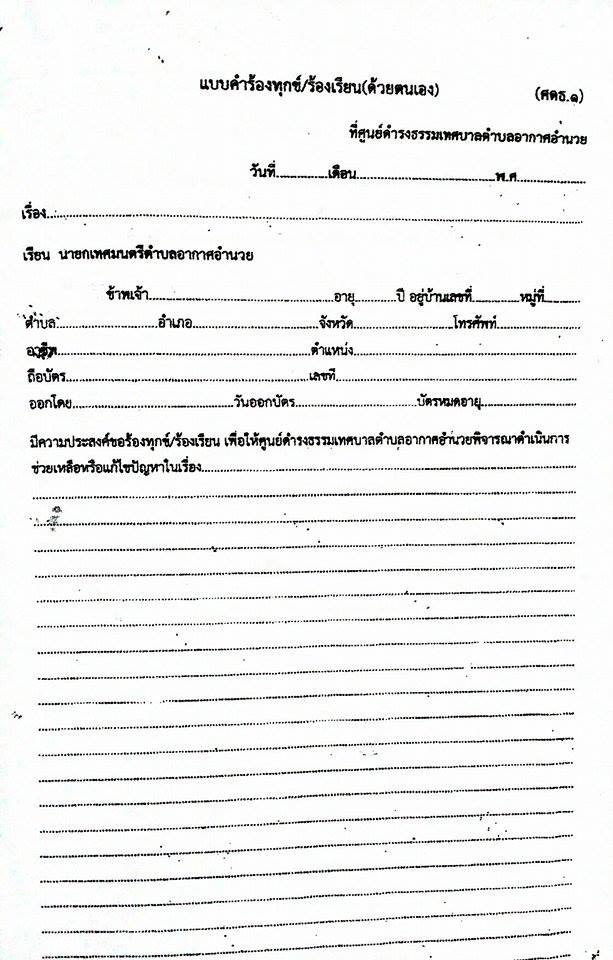 แบบคำร้องทุกข์/ร้องเรียน(ด้วยตนเอง) (ศดธ.๑)
ที่ศูนย์ดำรงธรรมเทศบาลตำบลอากาศอำนวย
วันที่...............เดือน........................................พ.ศ....................
เรื่อง..........................................................................................
เรียน นายกเทศมนตรีตำบลอากาศอำนวย
ข้าพเจ้า........................................อายุ............ปี อยู่บ้านเลขที่............หมู่ที่.........
ตำบล.........................อำเภอ................................จังหวัด.........................โทรศัพท์....................
อาชีพ................................................................ตำแหน่ง................................................
ถือบัตร................................................................เลขที่................................................
ออกโดย........................................วันออกบัตร..............................บัตรหมดอายุ........................
มีความประสงค์ขอร้องทุกข์/ร้องเรียน เพื่อให้ศูนย์ดำรงธรรมเทศบาลตำบลอากาศอำนวยพิจารณาดำเนินการ
ช่วยเหลือหรือแก้ไขปัญหาในเรื่อง................................................................................